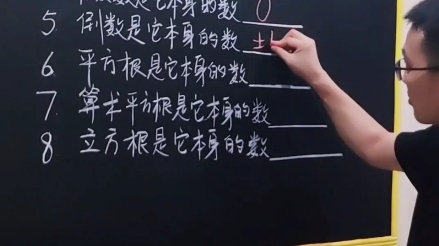 是它本身的数 0
5. 倒数是它本身的数 ±1
6. 平方根是它本身的数
7. 算术平方根是它本身的数
8 立方根是它本身的数